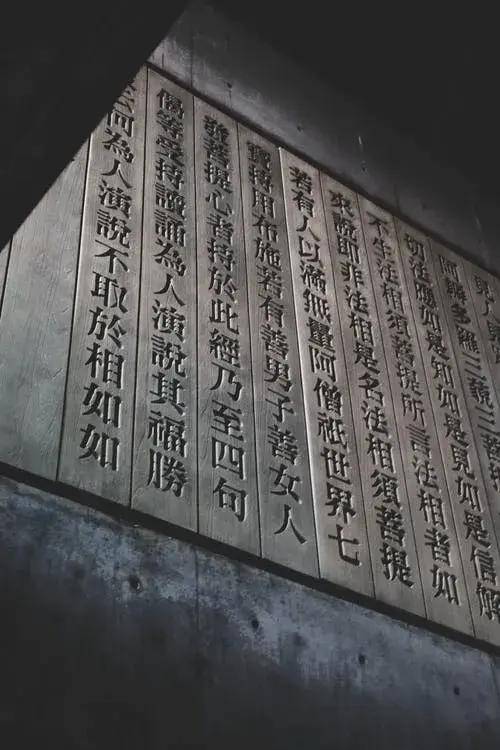 與人
阿耨多羅三藐三菩
切法應如是知如是見如是信解
不生法相須菩提所言法相者如
來說即非法相是名法相須菩提
若有人以滿無量阿僧祇世界七
寶持用布施若有善男子善女人
發菩提心者持於此經乃至四句
偈等受持讀誦為人演說其福勝
云何為人演說不取於相如如